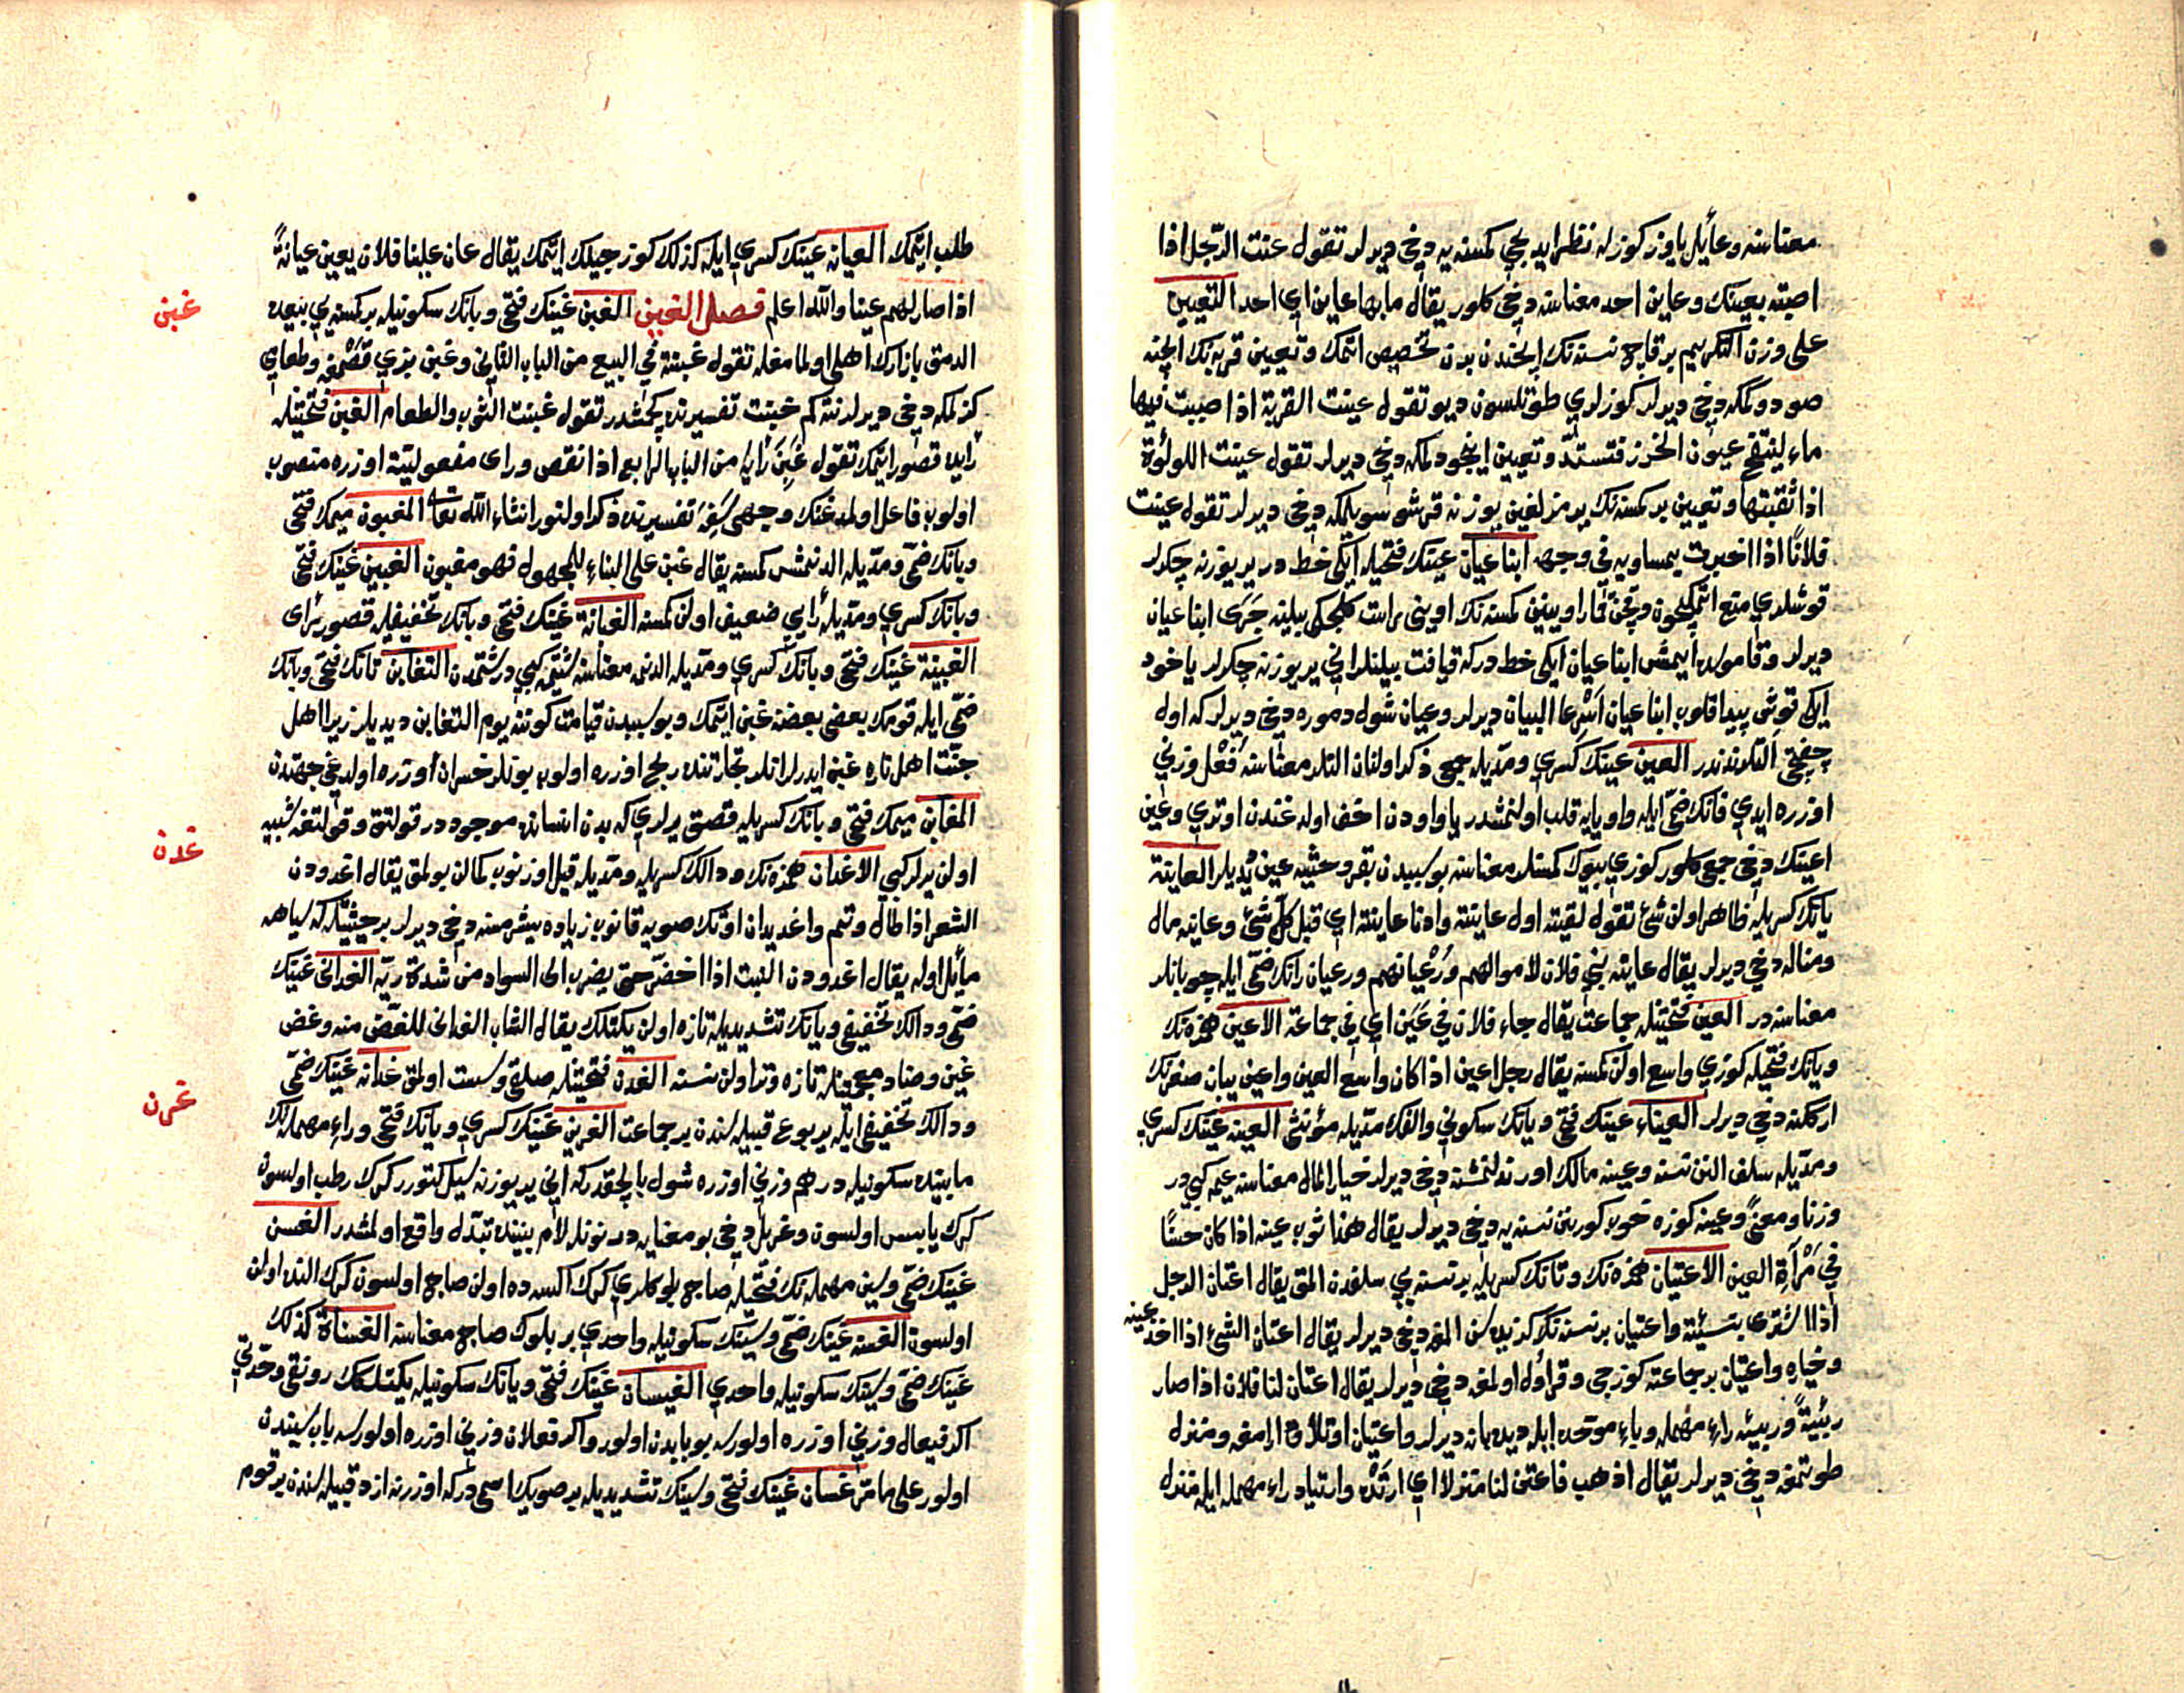 معناسنه وعأیل یاوز کوزله نظر ایدیجی کمسنه یه دخی دیرلر تقول عنت الرّجل اذا
اصبته بعینک وعاین احد معناسنه دخی کلور یقال ما بها عاین ای احد التعیین
علی وزن التکریم بر قاچ نسنه نک ایچندن برین تخصیص اتمک وتعیین قربه نک ایچنه
صو دولمکه دخی دیرلر کوزلری طوتلسون دیو تقول عینت القربة اذا صببت فیها
ماء لینتفخ عیون الخرز فتستدّ وتعیین اینجو دلمکه دخی دیرلر تقول عینت اللولؤة
اذا ثقبتها وتعیین بر کمسنه نک یرمزلغین یوزنه قرشو سویلمکه دخی دیرلر تقول عینت
فلانًا اذا اخبرت بمساویه فی وجهه ابنا عیان عینک فتحیله ایکی خط در یر یوزنه چکرلر
دیرلر وقاموسده ایتمش ابنا عیان ایکی خط درکه قیافت بیلنلر انی یر یوزنه چکرلر یاخود
ایکی قوش پیدا قلوب ابنا عیان اسرعا البیان دیرلر وعیان شول دموره دخی دیرلر که اول
چفتجی التلرنندر العین عینک کسری ومدّیله جمعی ذکر اولنان التلر معناسنه فُعْل وزنی
اوزره ایدی فانک ضمّی ایله واو یایه قلب اولنمشدر یا واودن اخف اولدغندن اوتری وعین
اعینک دخی جمعی کلور کوزی بیوک کمسنلر معناسنه بو سببدن بقر وحشیه عین دیدیلر العاینة
یانک کسریله ظاهر اولن شئ تقول لقیته اول عاینة وادنا عاینة ای قبل کلّ شئ وعاینه مال
ومناله دخی دیرلر یقال عاینه بنی فلان لاموالهم ورُعْیانهم ورعیان رانک ضمّی ایله چوبانلر
معناسنه در العین فتحتیله جماعت یقال جاء فلان فی عَیَن ای فی جماعة الاعین همزه نک
ویانک فتحیله کوزی واسع اولن کمسنه یقال رجل اعین اذا کان واسع العین واعین یبان صغرینک
ارککنه دخی دیرلر العیناء عینک فتحی ویانک سکونی والفک مدّیله مؤنثی العینه عینک کسری
ومدّیله سلف النن نسنه وعینه مالک اورندلنمشنه دخی دیرلر خیار المال معناسنه عیمه کبی در
وزنا ومعنیً وعینه کوزه خوب کورینن نسنه یه دخی دیرلر یقال هذا ثوب عینه اذا کان حسنًا
فی مَرْآةِ العین الاعتیان همزه نک وتانک کسریله بر نسنه یی سلفدن المق یقال اعتان الرجل
اذا اشتری بنسیئة واعتیان بر نسنه نک کزیده سن المغه دخی دیرلر یقال اعتان الشئ اذا اخذ عینه
وخیاره واعتیان بر جماعته کوزجی وقراول اولمغه دخی دیرلر یقال اعتان لنا فلان اذا صار
ربئیةً وربیئه راء مهمله وباء موحده ایله دیده بانه دیرلر واعتیان اوتلاق ارامغه ومنزل
طوتمغه دخی دیرلر یقال اذهب فاعتن لنا منزلا ای ارتَدْه وارتیاد راء مهمله ایله منزل
طلب ایتمک العیانه عینک کسری ایله کذلک کوزجیلک ایتمک یقال عان علینا فلان یعین عیانةً
اذا صار لهم عینا والله اعلم فصل الغین الغبن غینک فتحی وبانک سکونیله بر کمسنه یی بیعده
غبن
الدمق بازارک اهلی اولمامغله تقول غبنته فی البیع من الباب الثانی وغبن بزی قصمغه وطعامی
کزلمکه دخی دیرلر نته کم خبنت تفسیرنده کچمشدر تقول غبنت الثوب والطعام الغبن فتحتیله
رأیده قصور ایتمک تقول غَبِنَ رأیَه من الباب الرابع اذا نقص ورای مفعولیّته اوزره منصوب
اولوب فاعل اولمدغنک وجهی سَفِهَ تفسیرنده ذکر اولنور انشاء الله تعا المغبون میمک فتحی
وبانک ضمّی ومدّیله الدنمش کمسنه یقال غبن علی البناء للمجهول فهو مغبون الغبین غینک فتحی
وبانک کسری ومدّیله رأیی ضعیف اولن کمسنه الغبانة غینک فتحی وبانک تخفیفیله قصور رأی
الغبینة غینک فتحی وبانک کسری ومدّیله الدنمه معناسنه شتیمه کبی در شتمدن التغابن تانک فتحی وبانک
ضمّی ایله قومک بعضی بعضنه غبن ایتمک وبو سببدن قیامت کوننه یوم التغابن دیدیلر زیرا اهل
جنّت اهل ناره غبن ایدرلر انلر تجارتنده ربح اوزره اولوب بونلر خسران اوزره اولدغی جهتدن
المغابن میمک فتحی وبانک کسریله قصق یرلری که بدن انسانده موجوددر قولتق وقولتغه شبیه
غدن
اولن یرلر کبی الاغدان همزه نک ودالک کسریله ومدّیله قیل اوزنوب کمالن بولمق یقال اغدودن
الشعر اذا طال وتمّ واغدیدان اوتک صویه قانوب زیاده یشرمسنه دخی دیرلر بر حیثیتله که سیاهه
مأیل اوله یقال اغدودن النبت اذا اخضرّ حتی یضرب الی السواد من شدة ریّه الغدانی غینک
ضمّی ودالک تخفیفی ویانک تشدیدیله تازه اولن یکتلک یقال الشاب الغدانی للغضّ منه وغض
غین وضاد معجمتینله تازه وتر اولن نسنه الغدن فتحتیله صلاق وسست اولمق غدانه غینک ضمّی
غرن
ودالک تخفیفی ایله یربوع قبیله سندن بر جماعت الغرین غینک کسری ویانک فتحی وراء مهمله نک
مابینده سکونیله درهم وزنی اوزره شول بالچقدر که انی یر یوزنه سیل کتورر کرک رطب اولسون
کرک یابس اولسون وغریل دخی بو معنایه در نونله لام بیننده تبدّل واقع اولمشدر الغسن
غینک ضمّی وسین مهمله نک فتحیله صاچ بلوکلری کرک اکسه ده اولن صاچ اولسون کرک النده اولن
اولسون الغسنه غینک ضمّی وسینک سکونیله واحدی بر بلوک صاچ معناسنه الغسناة کذلک
غینک ضمّی وسینک سکونیله واحدی الغیسان غینک فتحی ویانک سکونیله یکتلکک رونقی وحدّتی
اکر فیعال وزنی اوزره اولورسه بو بابدن اولور واکر فعلان وزنی اوزره اولورسه باب سیندن
اولور علی ما مرّ غسان غینک فتحی وسینک تشدیدیله بر صویک اسمی درکه اوزرنه ازد قبیله سندن بر قوم